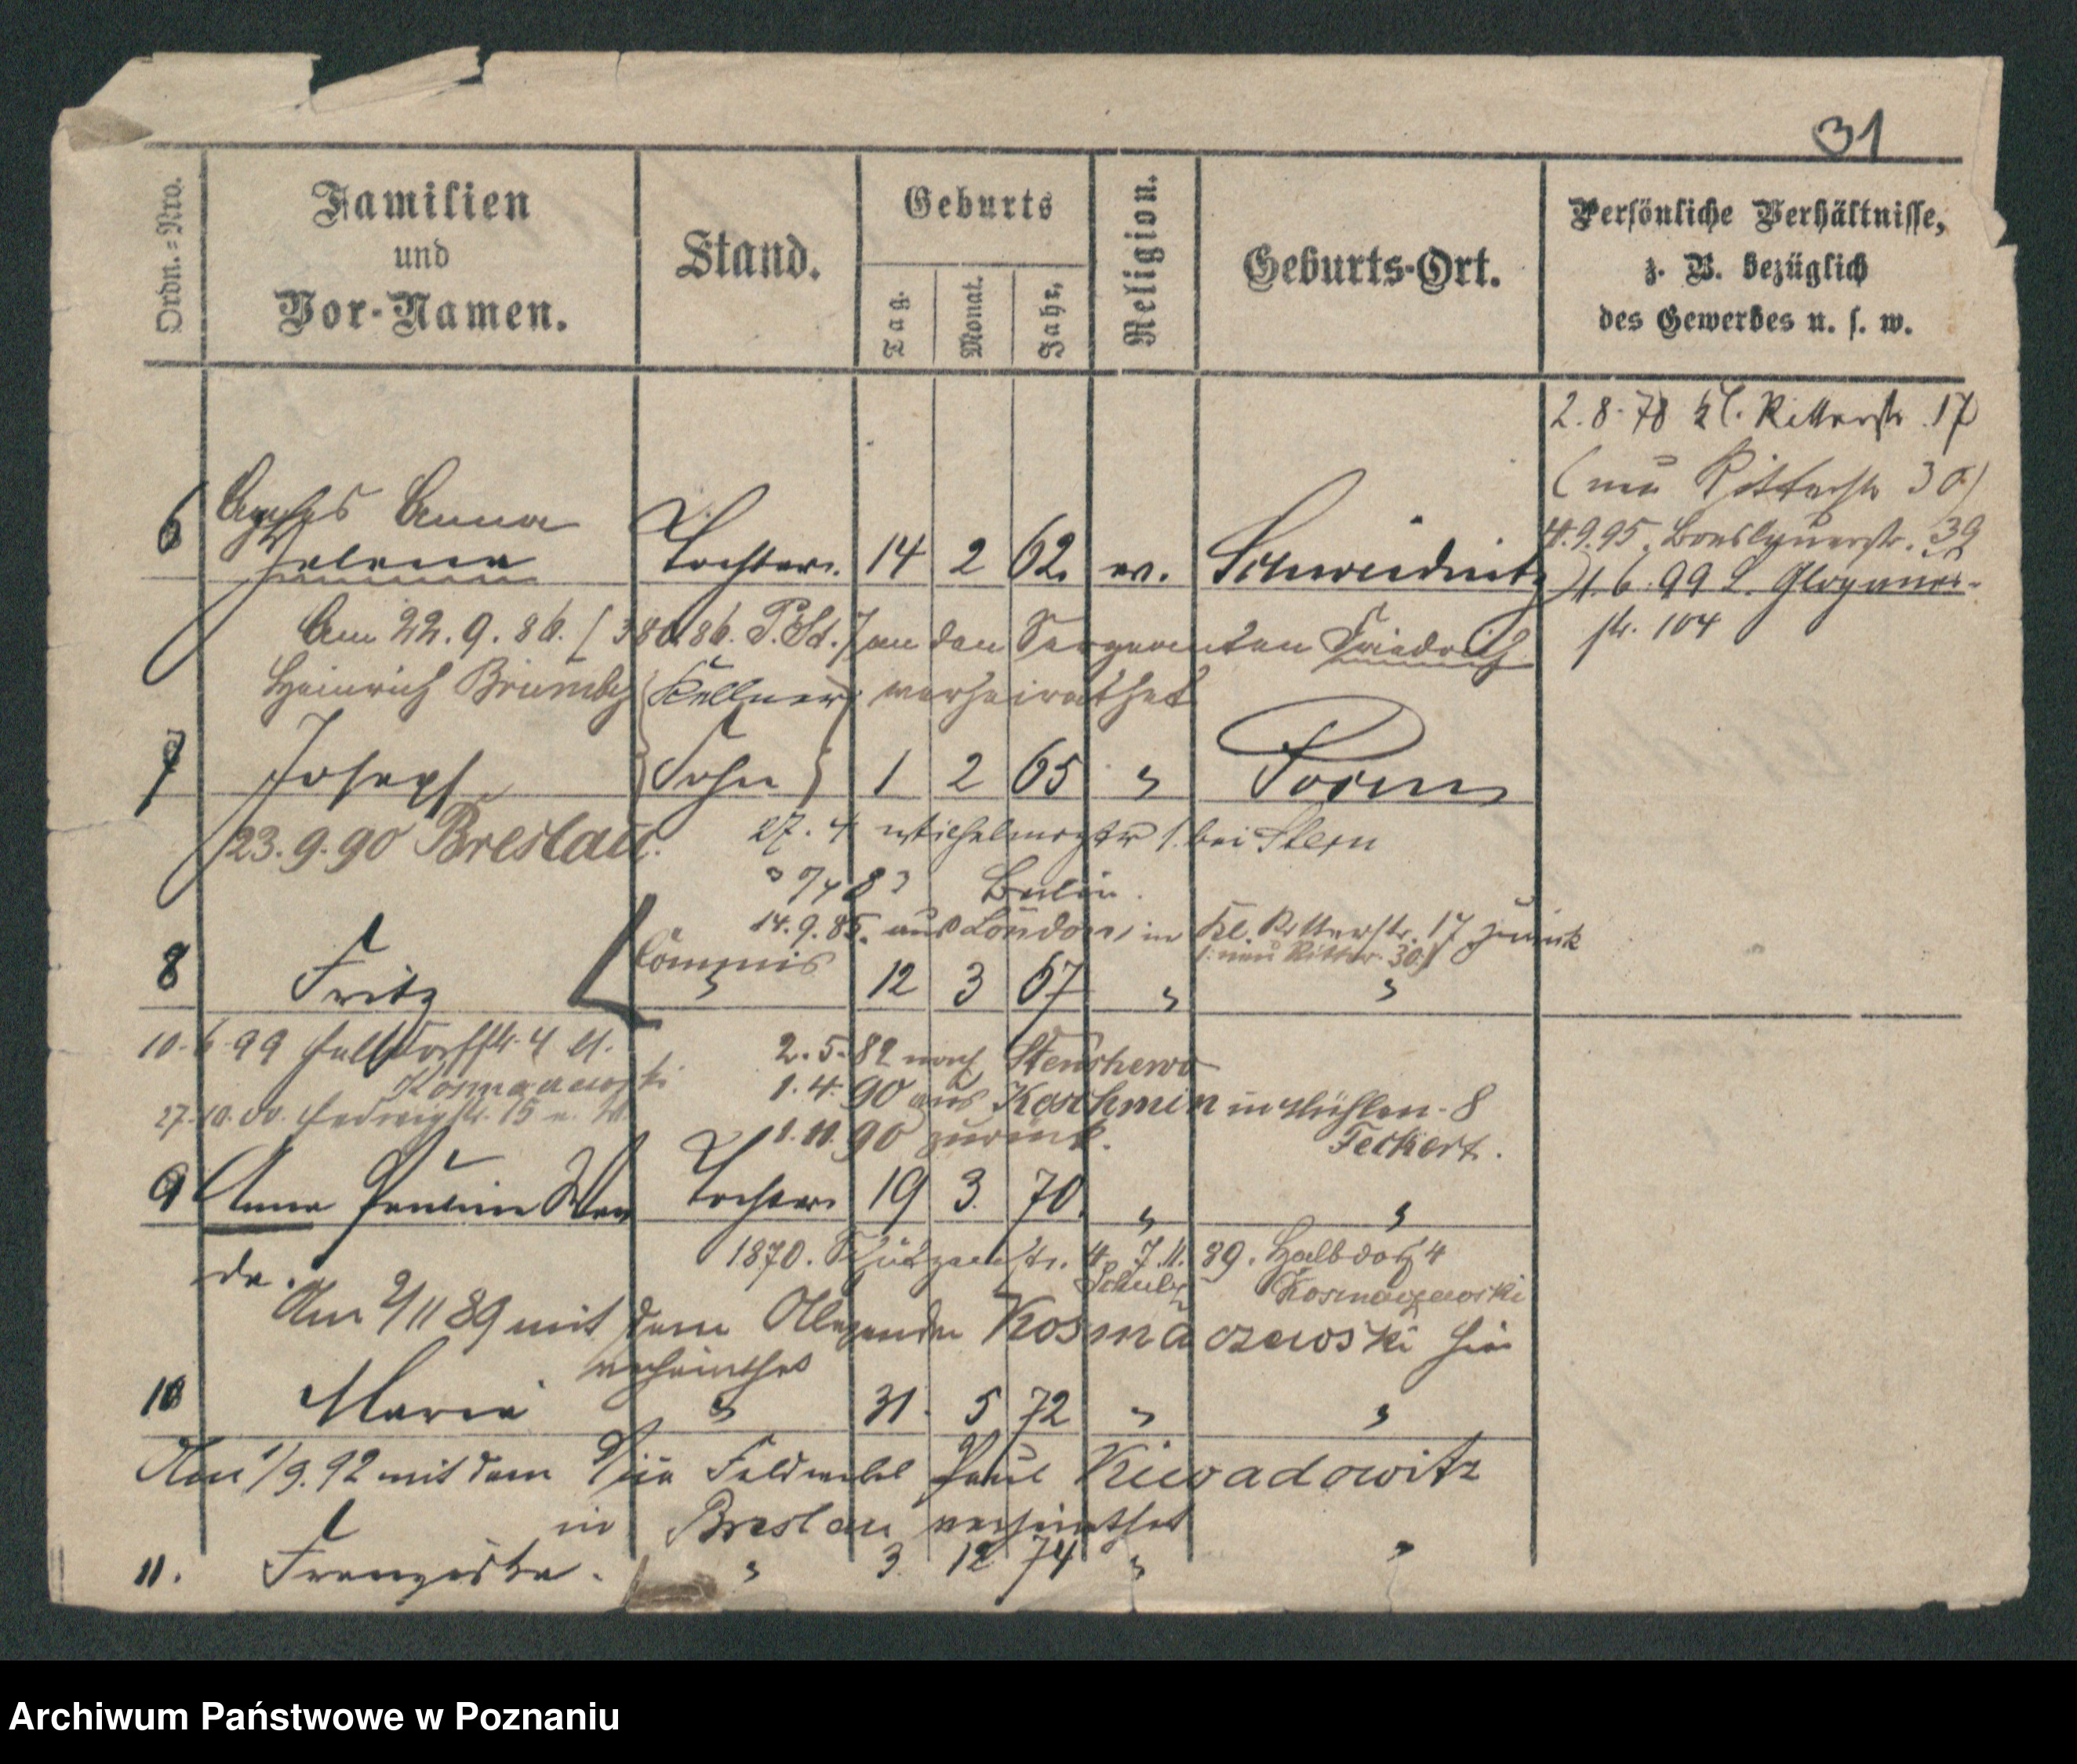 31
Ordn.=Nro.
Familien
und
Vor-Namen.
Stand.
Geburts
Tag.
Monat.
Jahr.
Religion.
Geburts-Ort.
Persönliche Verhältnisse,
z. B. bezüglich
des Gewerbes u. s. w.
2.8.78 Kl. Ritterstr. 17
(neu Ritterstr 30)
4.9.95. Breslauerstr. 39
1.6.99 Glogauer-
str. 104
6 Agnes Anna
Helena Tochter. 14 2 62. ev. Schweidnitz
Am 22.9.86. [380.86. P.St.] an den Sergeanten Friedrich
Heinrich Brumby verheirathet
Kellner
7 Joseph Sohn 1 2 65 " Posen
23.9.90 Breslau.
27.4 Wilhelmsstr 1. bei Stern
Berlin.
14.9.85. aus London, in Kl. Ritterstr. 17 zurück
(: neu Ritter. 30.)
Commis
8 Fritz " 12 3 67 " "
10.6.99 Halbdorfstr. 4
Kosmaczewski
2.5.82 nach Stenschewo
27.10.00. Hedwigstr. 15
1.4.90 aus Koschmin in Mühlen- 8
Feckert.
1.11.90 zurück.
9 Anna Pauline Wan Tochter 19 3. 70. " "
da.
1870. Schützenstr. 4. 7.11.89. Halbdorf 4
Schulz Kosmaczewski
Am 9/11 89 mit dem Alexander Kosmaczewski hier
verheirathet
10 Maria " 31. 5 72 " "
Am 1/9.92 mit dem Feldwebel Paul Kiwadowitz
in Breslau verheirathet
11. Franziska. " 3. 12 74 " "
Archiwum Państwowe w Poznaniu